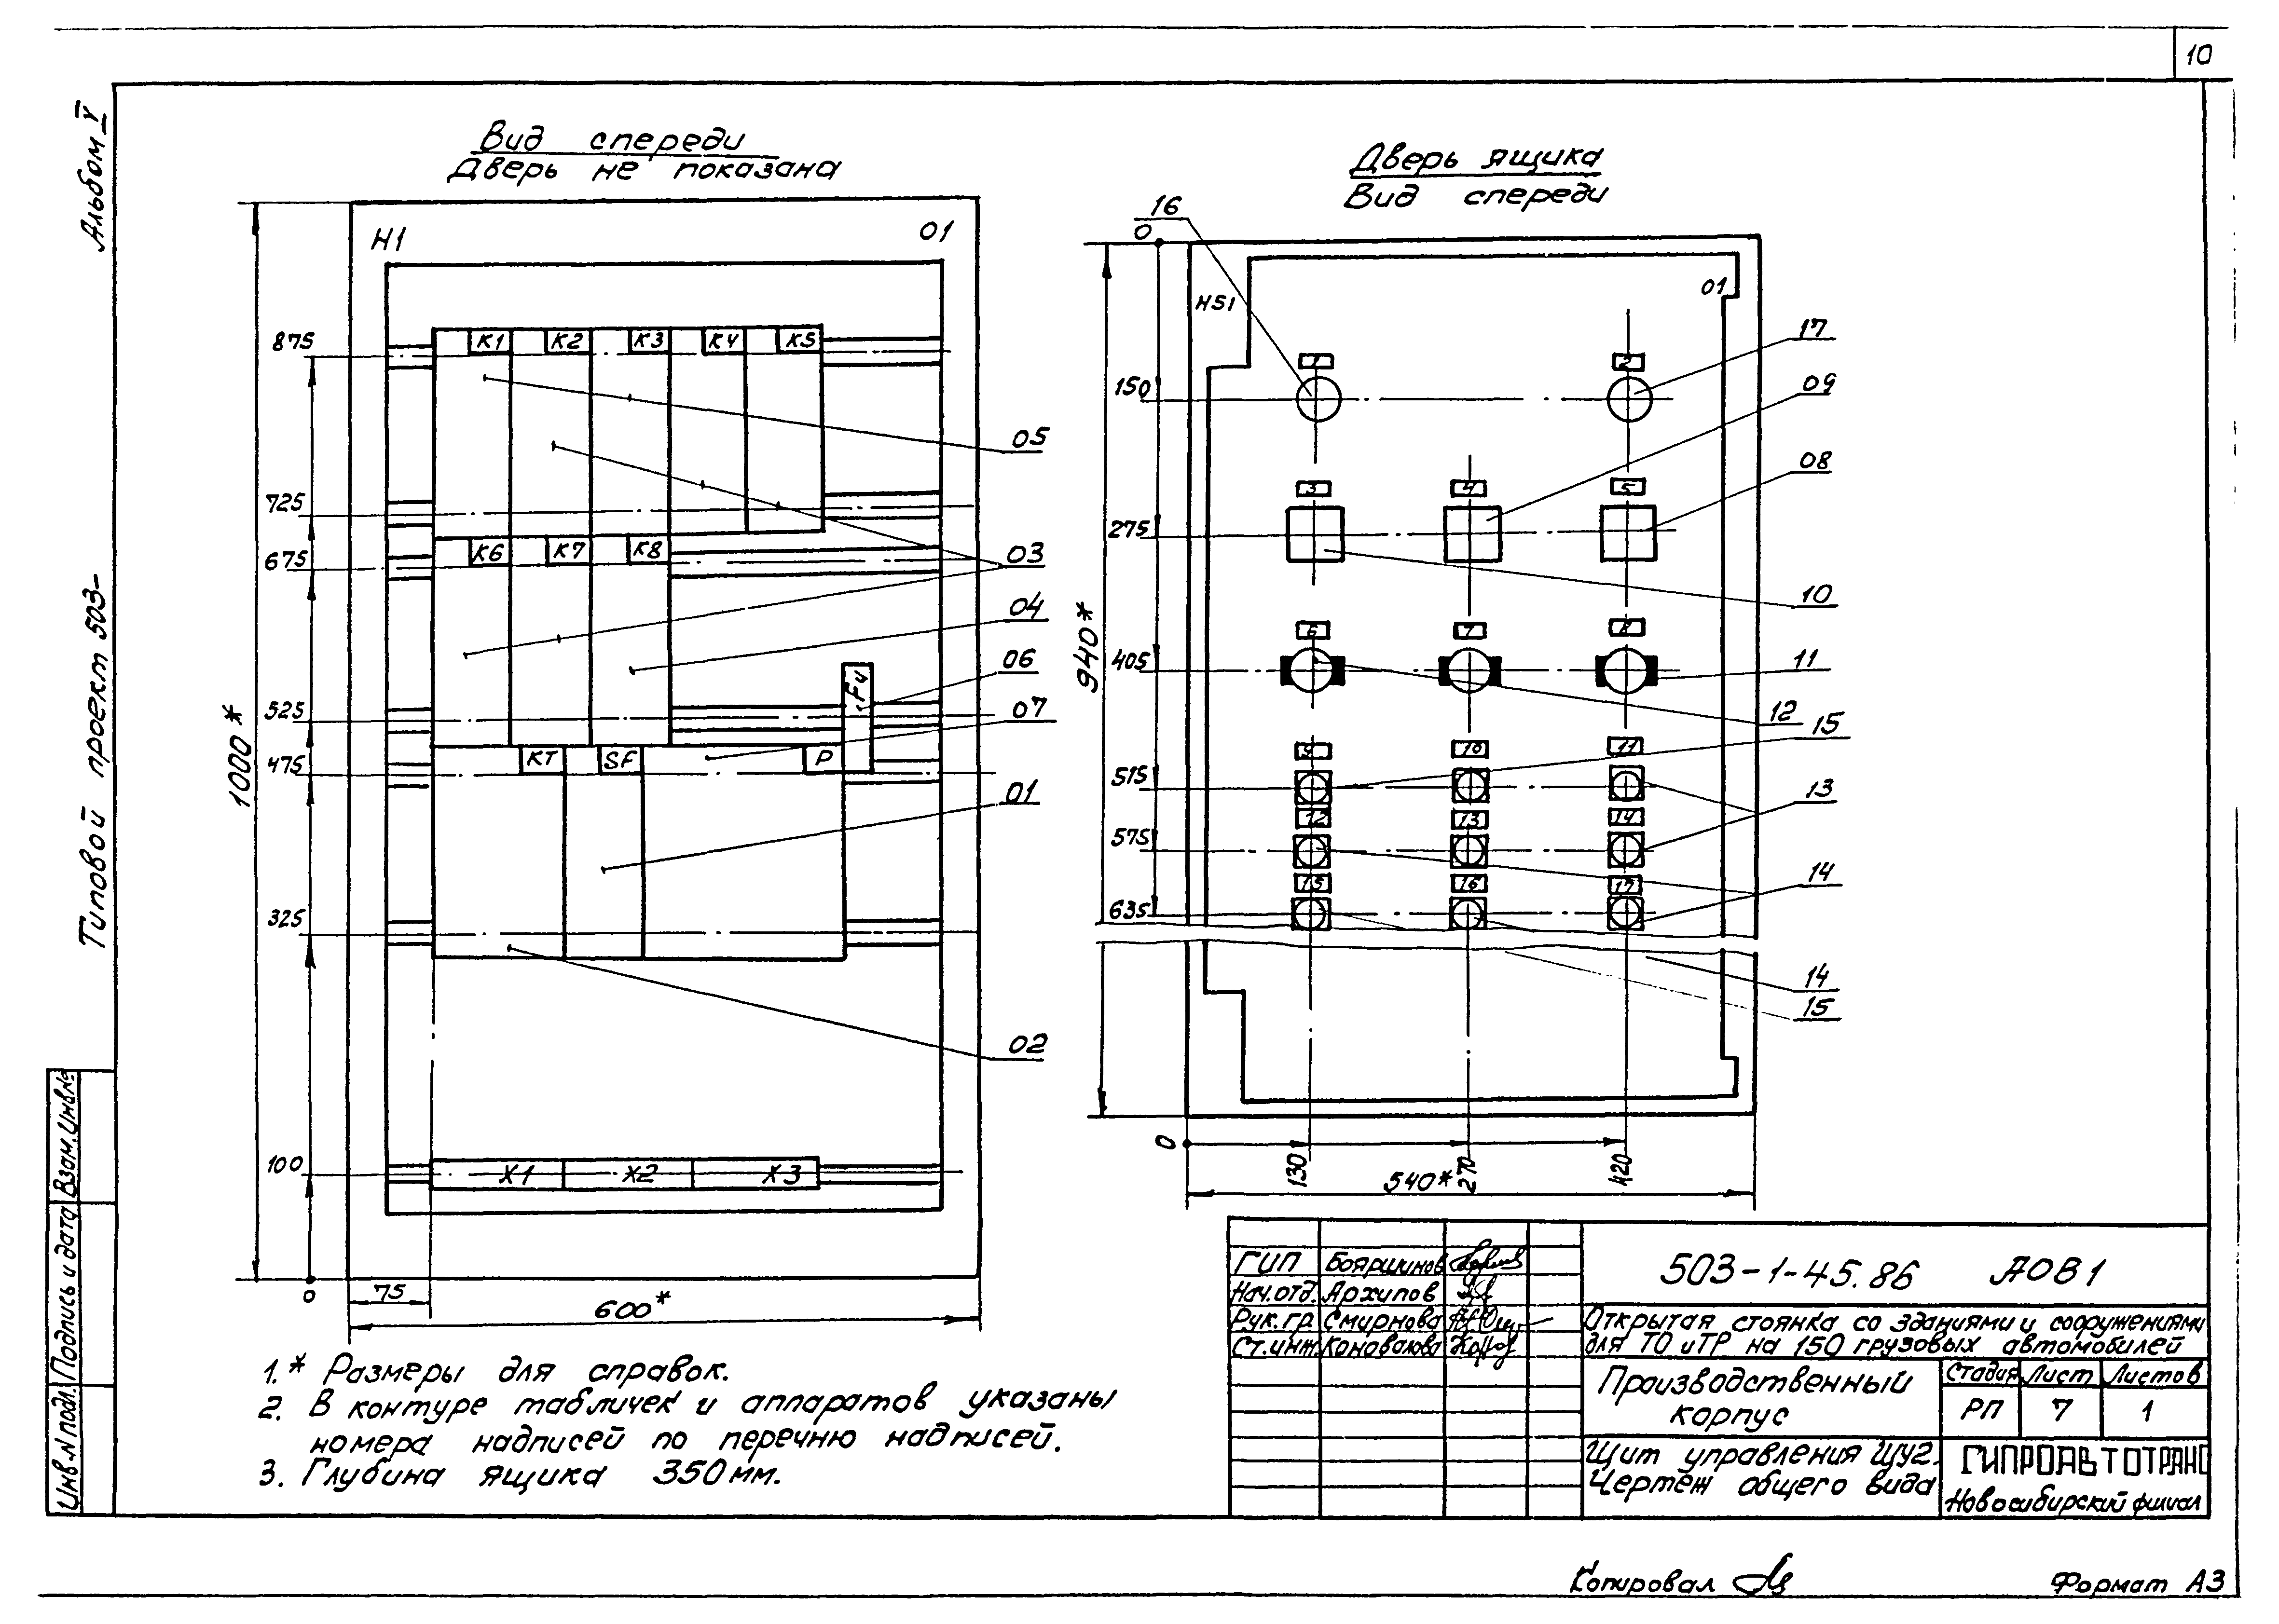 10
Альбом V
Типовой проект 503-
Вид спереди
Дверь не показана
H1
01
875
725
675
525
475
325
100
0
1000*
K1
K2
K3
K4
K5
K6
K7
K8
KT
SF
P
FU
X1
X2
X3
05
03
04
06
07
01
02
75
600*
Дверь ящика
Вид спереди
16
0
HS1
01
150
275
405
515
575
635
940*
1
2
3
4
5
6
7
8
9
10
11
12
13
14
15
16
17
17
09
08
10
11
12
15
13
14
14
15
0
130
270
420
540*
1.* Размеры для справок.
2. В контуре табличек и аппаратов указаны
номера надписей по перечню надписей.
3. Глубина ящика 350мм.
ГИП Бояршинов
Нач.отд. Архипов
Рук.гр. Смирнова
Ст.инж. Коновалова
503-1-45.86 АОВ1
Открытая стоянка со зданиями и сооружениями
для ТО и ТР на 150 грузовых автомобилей
Производственный
корпус
Стадия Лист Листов
РП 7 1
Щит управления ЩУ2.
Чертеж общего вида
ГИПРОАВТОТРАНС
Новосибирский филиал
Инв.N подл. Подпись и дата Взам.инв.№
Копировал
Формат А3